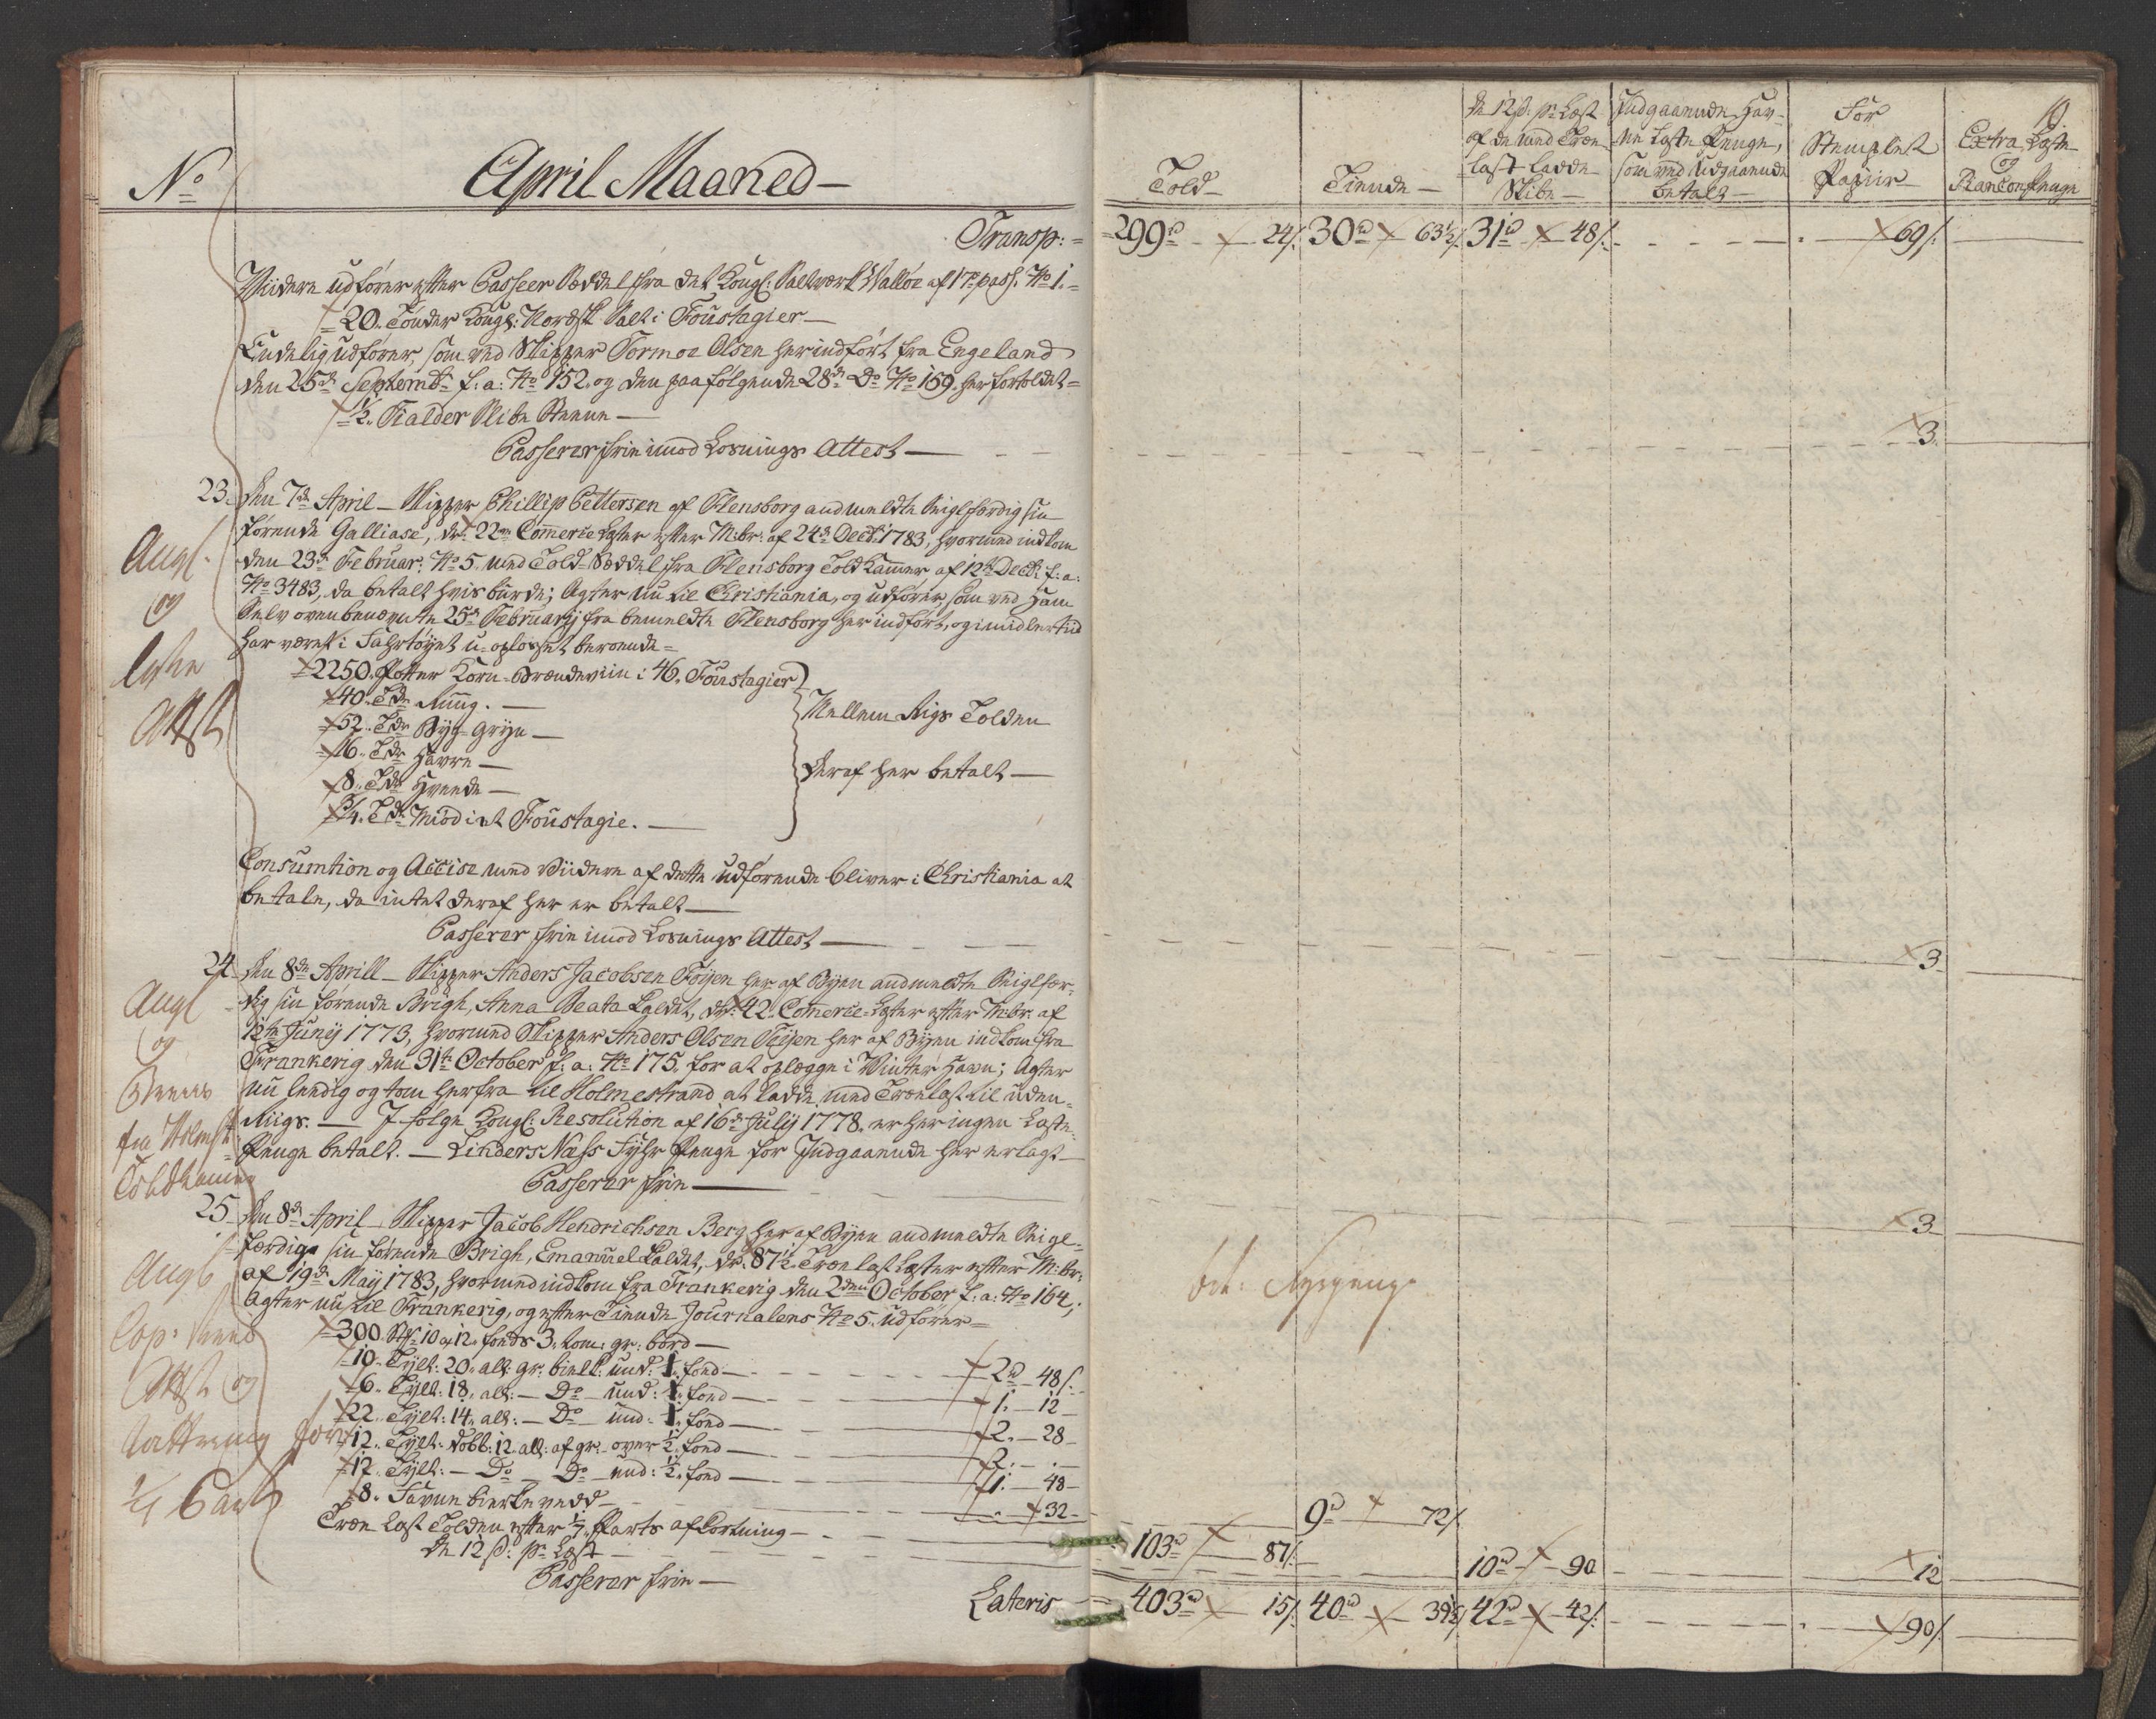 No
April Maaned
Transp:
Viidere udfører efter Passeer Seddel fra det Kongl: Saltverk Walløe af 17de pass. No 1.
20. Tønder Kongl: Norsk Salt i Foustagier
Endelig udfører, som ved Skipper Tormoe Olsen her indført fra Engeland
den 25de Septembr f: a: No 152. og den paafølgende 28de Do No 159. her fortoldet
1/2. Kialder Slibe Steene
Passerer frie imod Losnings Attest
23. Den 7de April Skipper Phillip Pettersen af Flensborg anmeldte Seiglfærdig sin
førende Galliase, dr. 22 Commerce Læster efter M:br: af 24de Decbr 1783, hvormed indkom
den 23de Februar: No 5. med Told-Seddel fra Flensborg Told Kammer af 12te Decbr f: a:
No 3483, da betalt hvis burde; Agter nu til Christiania, og udfører, som ved Ham
selv ovenbenævnte 25de Februarij fra bemeldte Flensborg her indført, og imidlertiid
har været i Fahrtøyet u-oplosset beroende
2250. Potter Korn-Brændeviin i 46. Foustagier
40. Tdr Rug.
52. Tdr Byg-Gryn
16. Tdr Havre
8. Tdr Hvede
3/4. Tdr Miød i et Foustagie.
Mellem Rigs Tolden
deraf her betalt
Consumtion og Accise med Viidere af dette udførende bliver i Christiania at
betale, da intet deraf her er betalt
Passerer frie imod Losnings Attest
24. Den 8de Aprill Skipper Anders Jacobsen Føyen her af Byen anmeldte Seiglfær-
dig sin førende Brigh, Anna Beata kaldet, dr. 42. Commerce-Læster efter M:br: af
12te Junij 1773, hvormed Skipper Anders Olsen Føyen her af Byen indkom fra
Frankerig den 31te October f: a: No 175, for at oplægge i Vinter Havn; Agter
nu leedig og tom herfra til Holmestrand at ladde med Trælast til uden-
Riigs. I følge Kongl: Resolution af 16de Julij 1778. er her ingen Læste-
Penge betalt. Linders Næss Fyhr Penge for Indgaaende her erlagt
Passerer frie
25. Den 8de April Skipper Jacob Hendrichsen Berg her af Byen anmeldte Seigl-
færdig sin førende Brigh, Emanuel kaldet, dr. 87 1/2. Trælast Læster efter M:br:
af 19de Maij 1783, hvormed indkom fra Frankerig den 2den October f: a: No 164;
Agter nu til Frankerig, og efter Tiende Journalens No 5. udfører
300. Stk 10 a 12. fods 3. tom: gr: bord
10. Tylt: 20. alt. gr. bielk: und: 1. fod 2 rd 48 s.
6. Tylt: 18. alt: Do und: 1. fod 1. 12
22. Tylt: 14. alt: Do und: 1. fod 2. 28
12. Tylt: dobb: 12. alt: af gr. over 1/2. fod 2. -
17. Tylt: Do Do und: 1/2. fod 1. 48
8. Favne birke vedd 32
Træe Last Tolden efter 1/7. Parts afkortning
De 12 s: pr Læst
Passerer frie
Lateris
Angl.
og
Losse
Attest
Angl
og
fra Holmest:
Toldkammer
Angl
Cop:
Attest og
for
1/7 Part
Told
Tiende
De 12 s: pr Læst
af de med Træe-
last ladde
Skibe
Indgaaende Hav-
ne Læste Penge,
som ved Udgaaende
betalt
For
Stemplet
Papiir
19.
Extra Læste
og
Rancon Penge
299 rd 24 s. 30 rd 63 1/2 s. 31 rd 48 s. 69 s.
3.
3.
3.
9 rd 72 s.
103 rd 87 s.
10 rd 90
12
403 rd 15 s. 40 rd 39 1/2 s. 42 rd 42 s. 90 s.